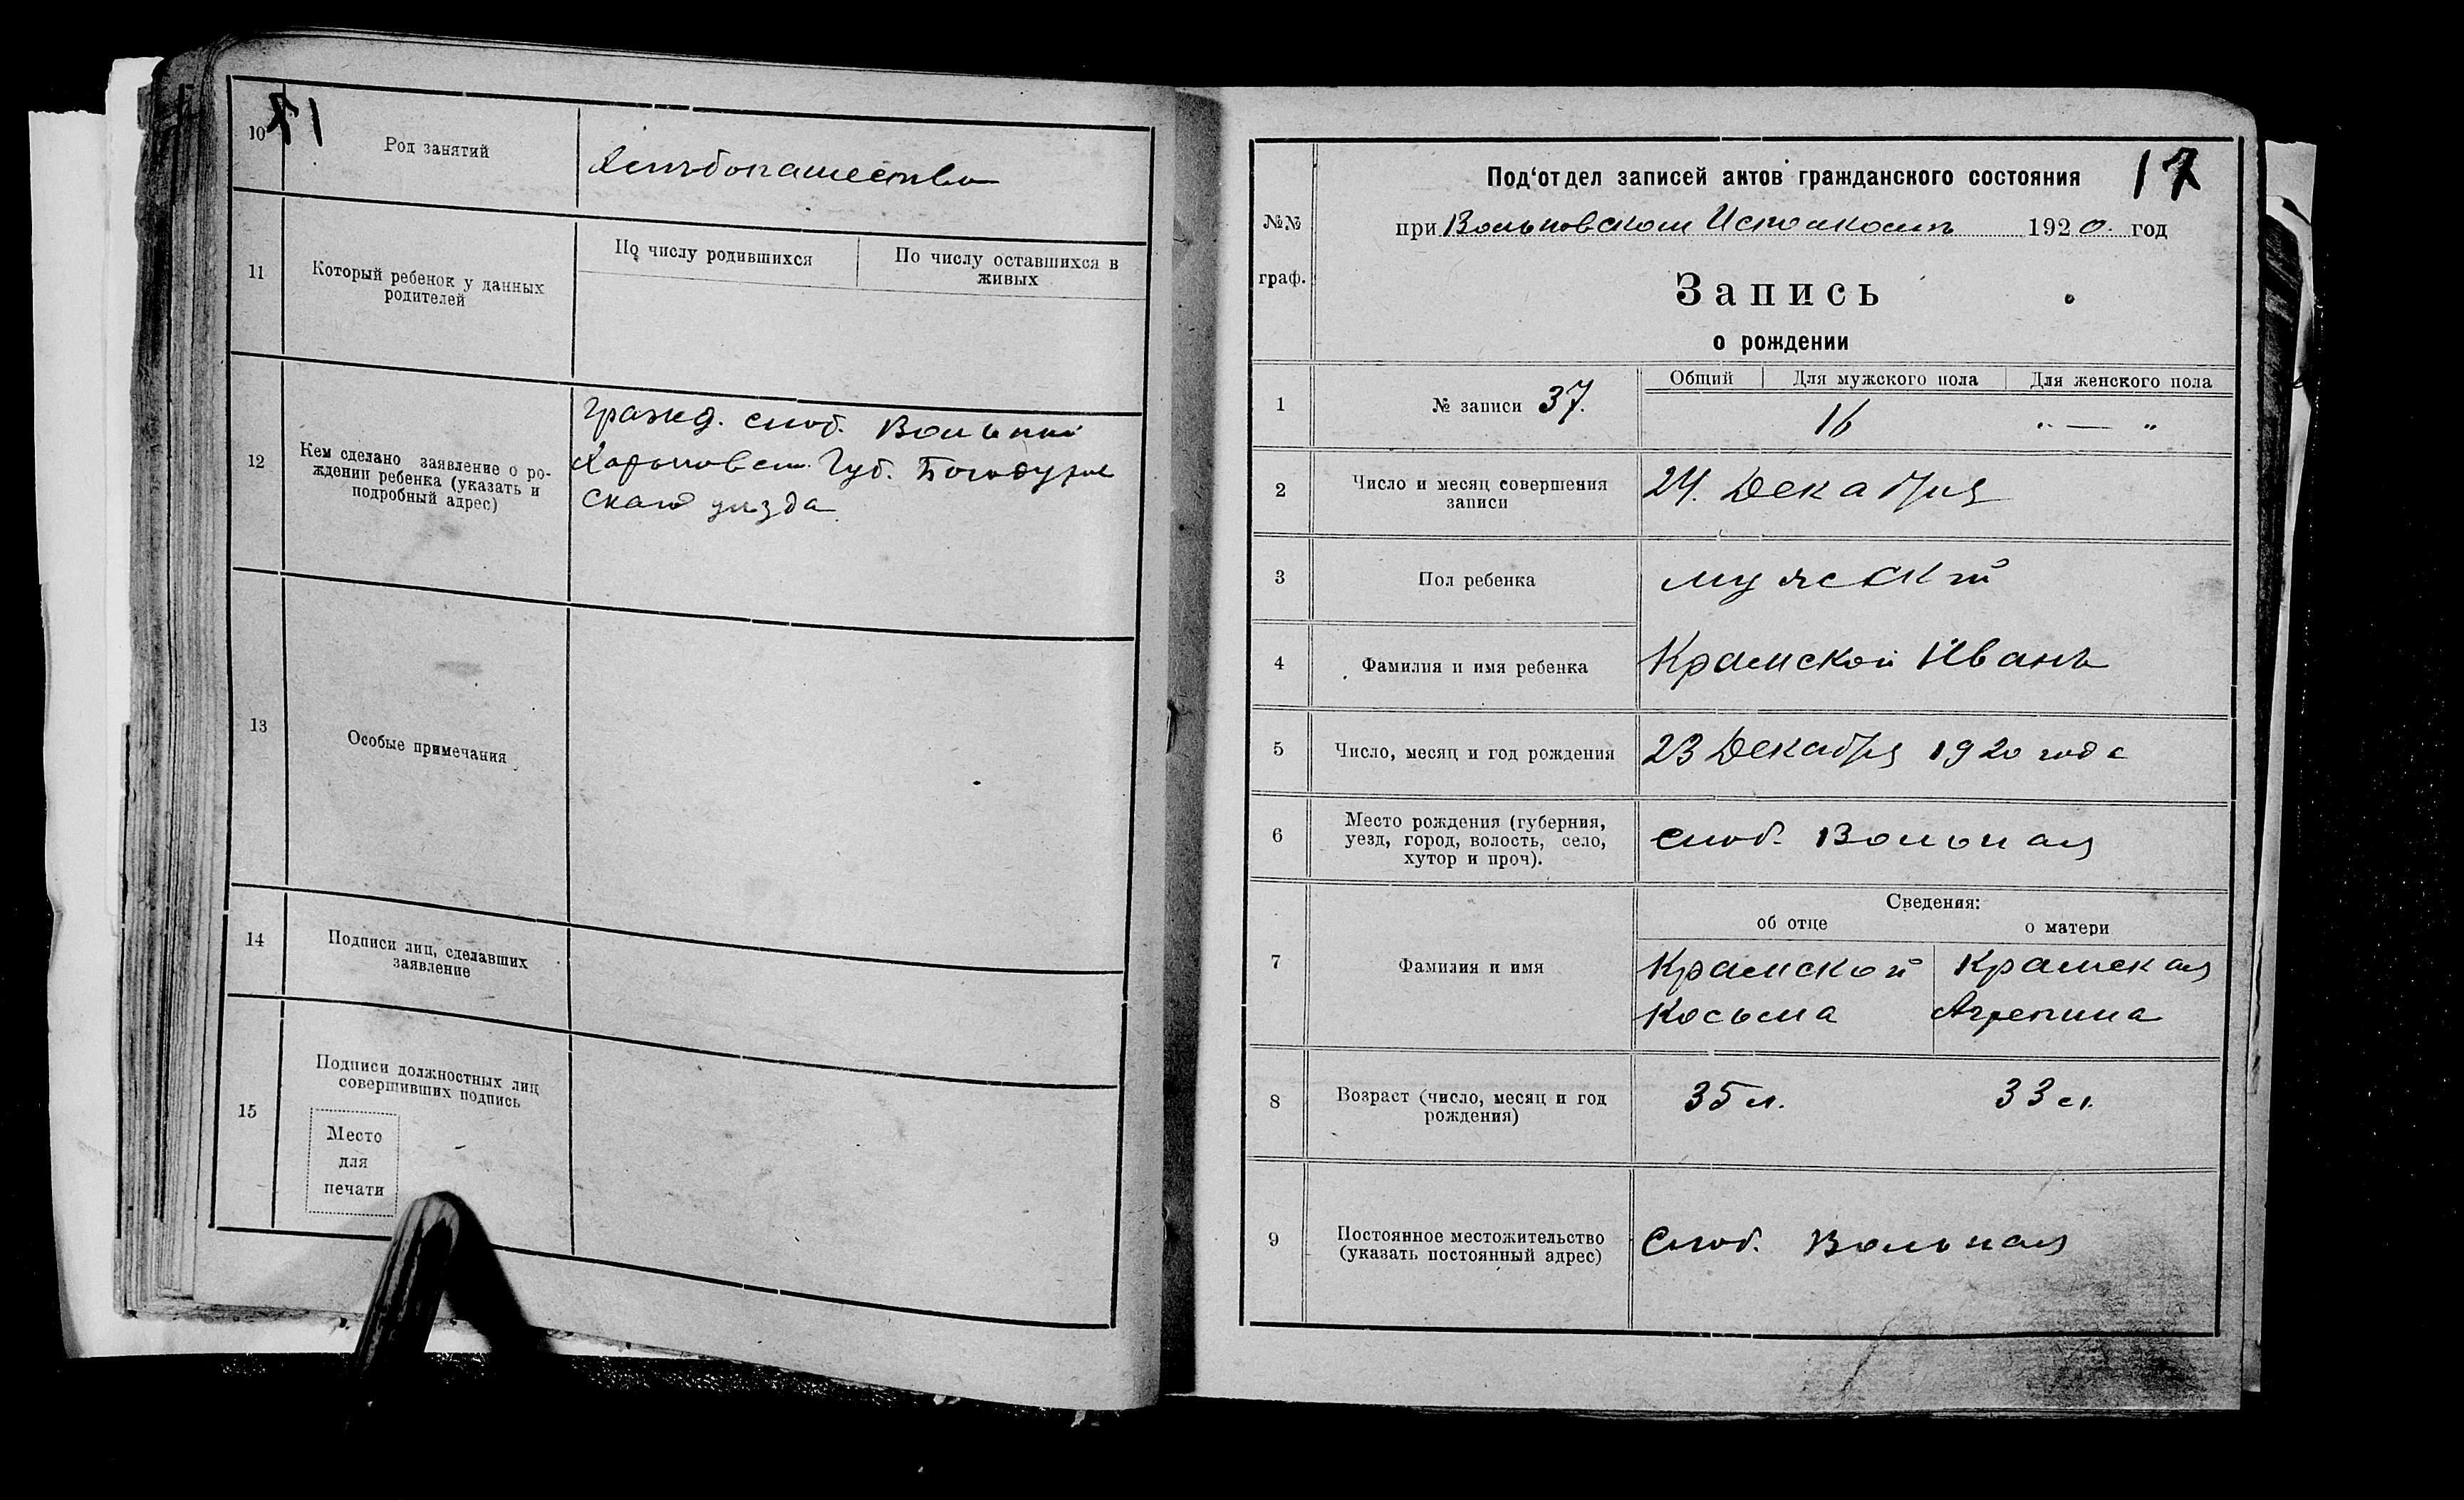 10
Род занятий
Хлѣбопашество
11
Который ребенок у данных
родителей
По числу родившихся
По числу оставшихся в
живых
12
Кем сделано заявление о ро-
ждении ребенка (указать и
подробный адрес)
гражд. слоб. Вольной
Харьковск. Губ. Богодухов
скаго уѣзда
13
Особые примечания
14
Подписи лиц, сделавших
заявление
15
Подписи должностных лиц
совершивших подпись
Место
для
печати
17
№№
граф.
Под‘отдел записей актов гражданского состояния
при Вольновском Исполкомѣ 1920. год
Запись
о рождении
1
№ записи 37.
Общий
Для мужского пола
Для женского пола
16
„ — „
2
Число и месяц совершения
записи
24. Декабря
3
Пол ребенка
мужской
4
Фамилия и имя ребенка
Крамской Иванъ
5
Число, месяц и год рождения
23 Декабря 1920 года
6
Место рождения (губерния,
уезд, город, волость, село,
хутор и проч).
слоб. Вольная
7
Фамилия и имя
Сведения:
об отце
о матери
Крамской
Косьма
Крамская
Агрепина
8
Возраст (число, месяц и год
рождения)
35 л.
33 л.
9
Постоянное местожительство
(указать постоянный адрес)
Слоб. Вольная